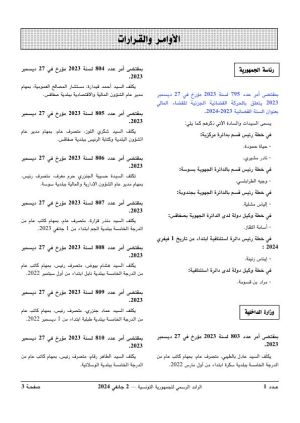 الأوامر والقرارات
رئاسة الجمهورية
بمقتضى أمر عدد 795 لسنة 2023 مؤرخ في 27 ديسمبر
2023 يتعلق بالحركة القضائية الجزئية للقضاء المالي
بعنوان السنة القضائية 2023-2024.
يسمى السيدات والسادة الآتي ذكرهم كما يلي:
في خطة رئيس قسم بدائرة مركزية:
- حياة حمودة.
-
في خطة رئيس قسم بالدائرة الجهوية بسوسة:
-
في خطة رئيس قسم بالدائرة الجهوية بجندوبة:
- إلياس
في خطة وكيل دولة لدى الدائرة الجهوية بصفاقس:
- أسامة
في خطة رئيس دائرة استئنافية ابتداء من تاريخ 1 فيفري
2024 :
- إيناس
في خطة وكيل دولة لدى دائرة استئنافية:
- مراد بن قسومة.
وزارة الداخلية
بمقتضى أمر عدد 803 لسنة 2023 مؤرخ في 27 ديسمبر
2023.
يكلف السيد عادل متصرف رئيس، بمهام كاتب عام
الدرجة الخامسة ببلدية سكرة ابتداء من أول مارس 2022.
بمقتضى أمر عدد 804 لسنة 2023 مؤرخ في 27 ديسمبر
2023.
يكلف السيد أحمد مستشار المصالح العمومية، بمهام
مدير عام الشؤون المالية والاقتصادية ببلدية صفاقس.
بمقتضى أمر عدد 805 لسنة 2023 مؤرخ في 27 ديسمبر
2023.
يكلف السيد شكري متصرف عام، بمهام مدير عام
الشؤون البلدية وكتابة الرئيس ببلدية صفاقس.
بمقتضى أمر عدد 806 لسنة 2023 مؤرخ في 27 ديسمبر
2023.
تكلف السيدة حسيبة متصرف رئيس،
بمهام مدير عام الشؤون الإدارية والمالية ببلدية سوسة.
بمقتضى أمر عدد 807 لسنة 2023 مؤرخ في 27 ديسمبر
2023.
يكلف السيد متصرف عام، بمهام كاتب عام من
الدرجة الخامسة ببلدية ابتداء من 1 جانفي 2023.
بمقتضى أمر عدد 808 لسنة 2023 مؤرخ في 27 ديسمبر
2023.
يكلف السيد هشام متصرف رئيس، بمهام كاتب عام من
الدرجة الخامسة ببلدية نابل ابتداء من أول سبتمبر 2022.
بمقتضى أمر عدد 809 لسنة 2023 مؤرخ في 27 ديسمبر
2023.
يكلف السيد عماد متصرف رئيس، بمهام كاتب عام من
الدرجة الخامسة ببلدية ابتداء من 1 ديسمبر 2022.
بمقتضى أمر عدد 810 لسنة 2023 مؤرخ في 27 ديسمبر
2023.
يكلف السيد الطاهر متصرف رئيس، بمهام كاتب عام من
الدرجة الخامسة ببلدية
عدد 1
الرائد الرسمي للجمهورية التونسية — 2 جانفي 2024
صفحة 3